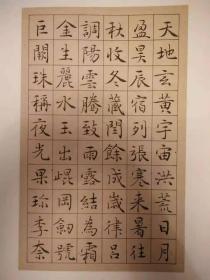 天地玄黃宇宙洪荒日月
盈昃辰宿列張寒來暑往
秋收冬藏閏餘成歲律呂
調陽雲騰致雨露結為霜
金生麗水玉出崐岡劒號
巨闕珠稱夜光果珍李奈